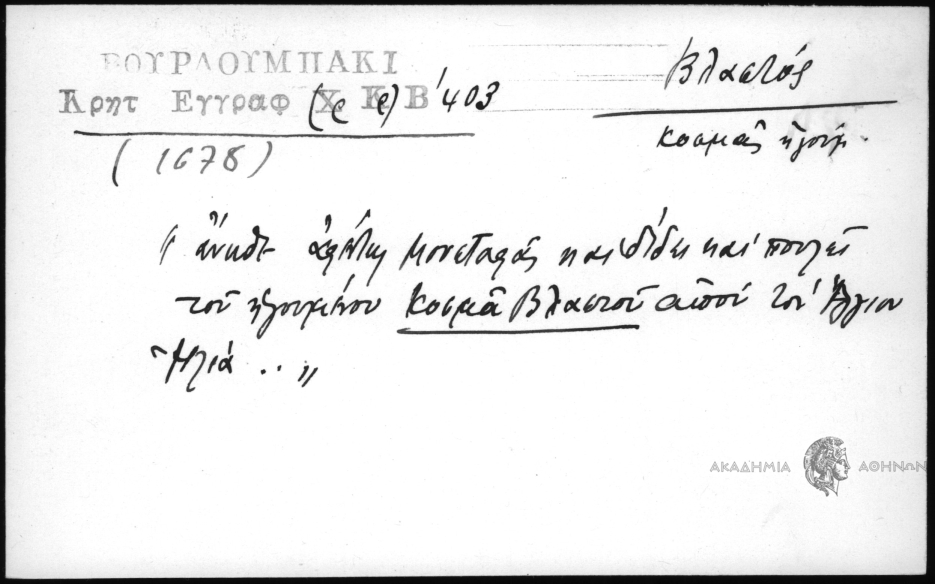 ΒΟΥΡΔΟΥΜΠΑΚΙ
Κρητ Εγγραφ Χ Κ Β' 403
(1678)
Βλαστός
Κοσμᾶς ἡγούμ.
" ἄνωθε ἀφέντης Μουσταφᾶς καὶ δίδει καὶ πουλεῖ
τοῦ ἡγουμένου Κοσμᾶ Βλαστοῦ ἀπού τον Ἅγιον
Ἠλιά .. "
ΑΚΑΔΗΜΙΑ ΑΘΗΝΩΝ